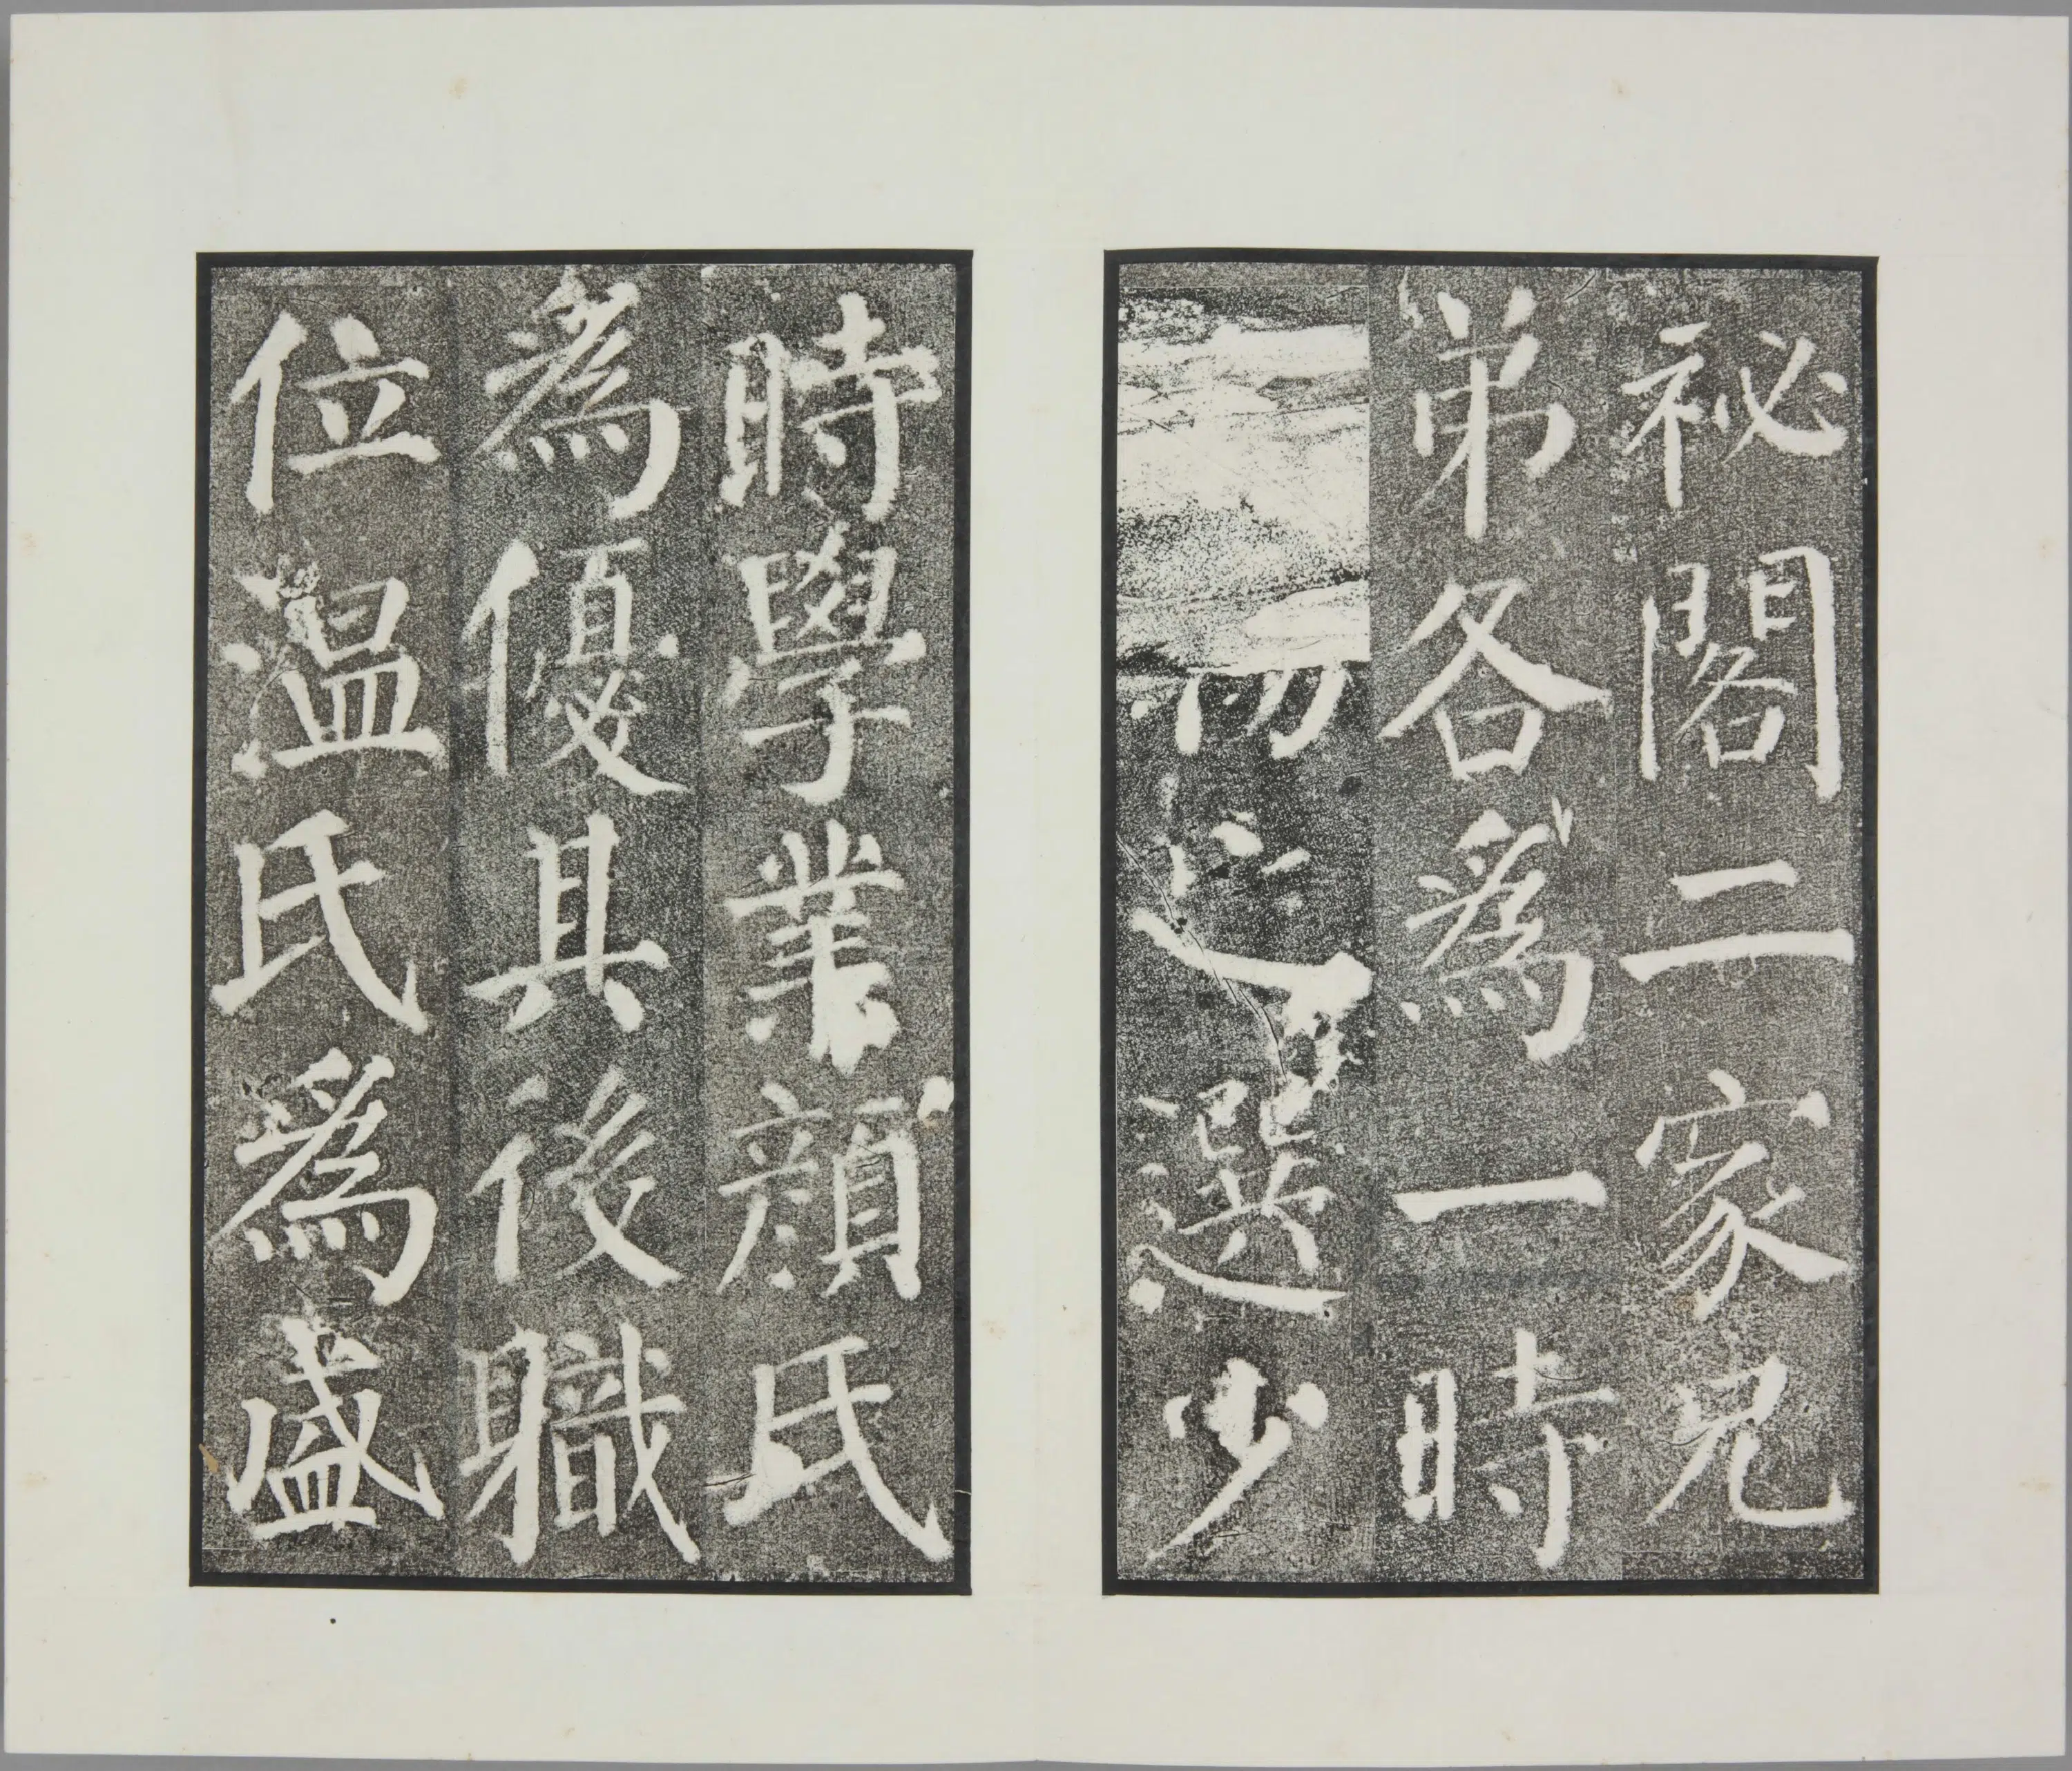 祕閣二家兄
弟各爲一時
選少
時學業顏氏
爲優其後職
位溫氏爲盛